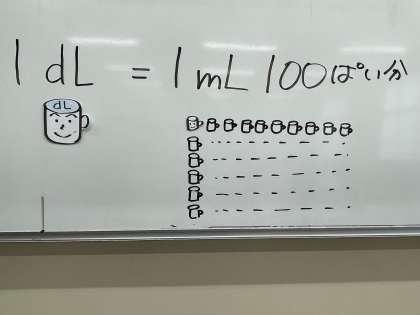 1 dL = 1 mL 100ぱい分
dL